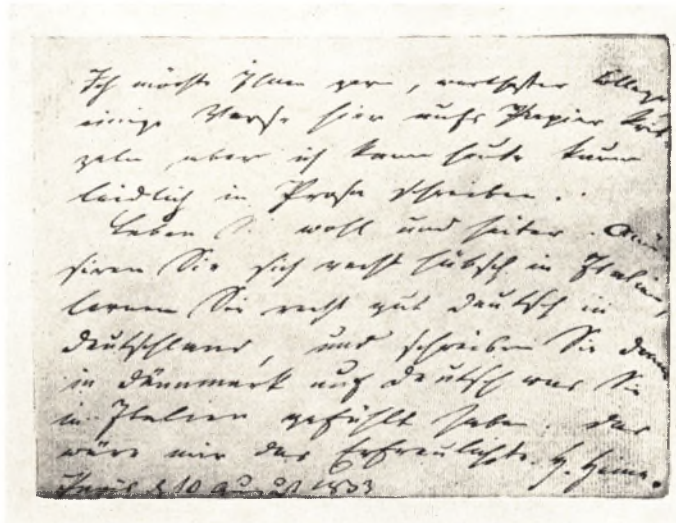 Ich möchte Ihnen gern, werthester College
einige Verse hier aufs Papier krit-
zeln aber ich kann heute kaum
leidlich in Prosa schreiben..
Leben Sie wohl und heiter. Amü-
siren Sie sich recht hübsch in Italien,
lernen Sie recht gut deutsch in
Deutschland, und schreiben Sie dann
in Dännmark auf deutsch was Sie
in Italien gefühlt haben. Das
wäre mir das Erfreulichste. H. Heine.
Paris d 10 August 1833